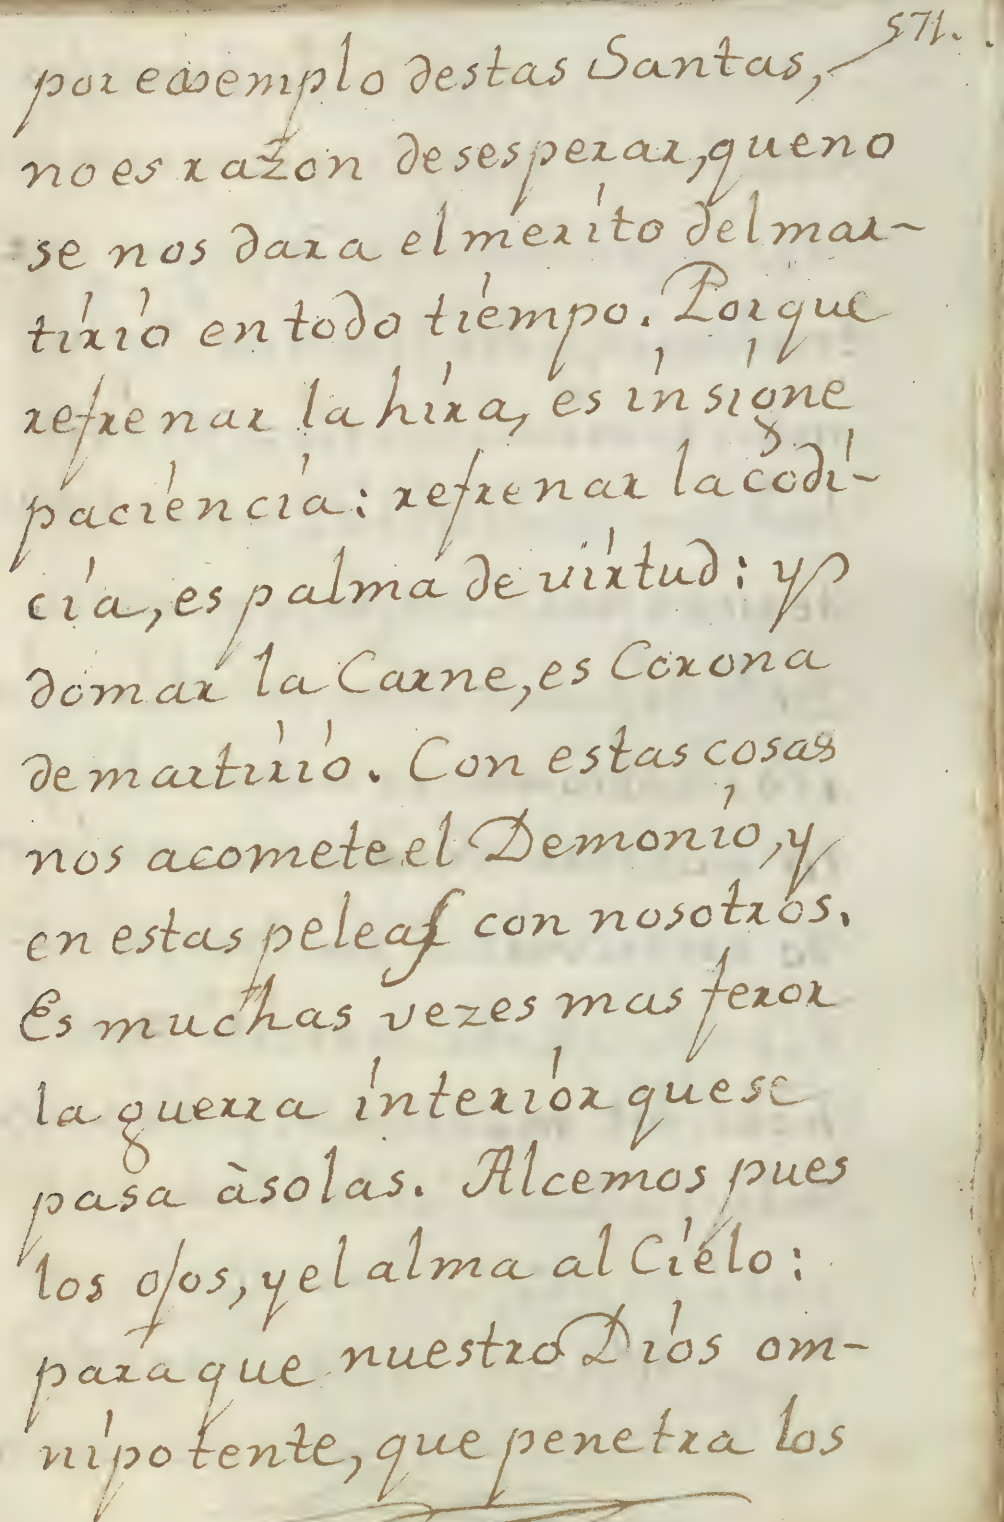 571.
por exemplo destas Santas,
no es razon desesperar, que no
se nos dara el merito del mar-
tirio en todo tiempo. Porque
refrenar la hira, es insigne
paciencia: refrenar la codi-
cia, es palma de uirtud: y
domar la Carne, es Corona
de martirio. Con estas cosas
nos acomete el Demonio, y
en estas peleas con nosotros.
Es muchas vezes mas feror
la guerra interior que se
pasa àsolas. Alcemos pues
los ojos, y el alma al Cielo:
para que nuestro Dios om-
nipotente, que penetra los